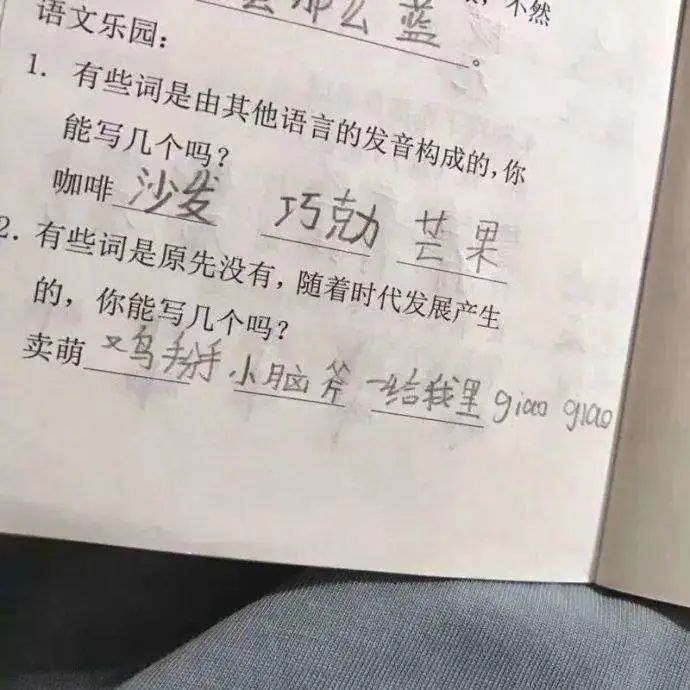 么那么蓝
，不然
语文乐园： 。
1. 有些词是由其他语言的发音构成的，你
能写几个吗？
咖啡 沙发 巧克力 芒果
2. 有些词是原先没有，随着时代发展产生
的，你能写几个吗？
卖萌 鸡掰 小脑斧 一给我里giao giao